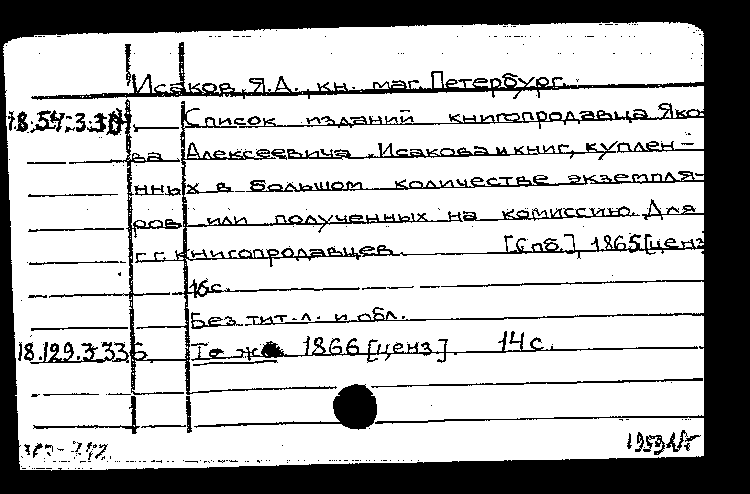 Исаков, Я.А., кн. маг. Петербург.
18.57.3.381. Список изданий книгопродавца Яко-
ва Алексеевича Исакова и книг, куплен-
нных в большом количестве экземпля-
ров или полученных на комиссию. Для
г.г. книгопродавцев. [Спб.], 1865[ценз
16с.
Без тит. л. и обл.
18.129.3.336. То же 1866 [ценз]. 14 с.